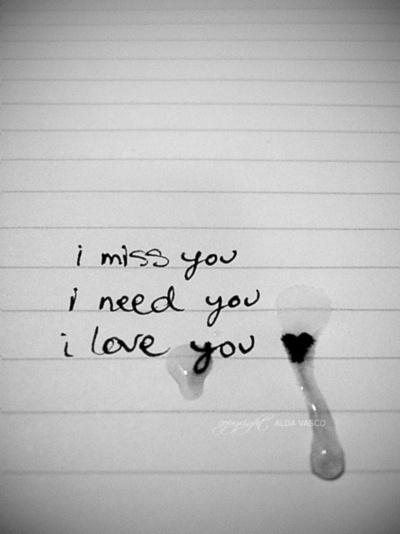 i miss you
i need you
i love you
copyright ALDA VASCO